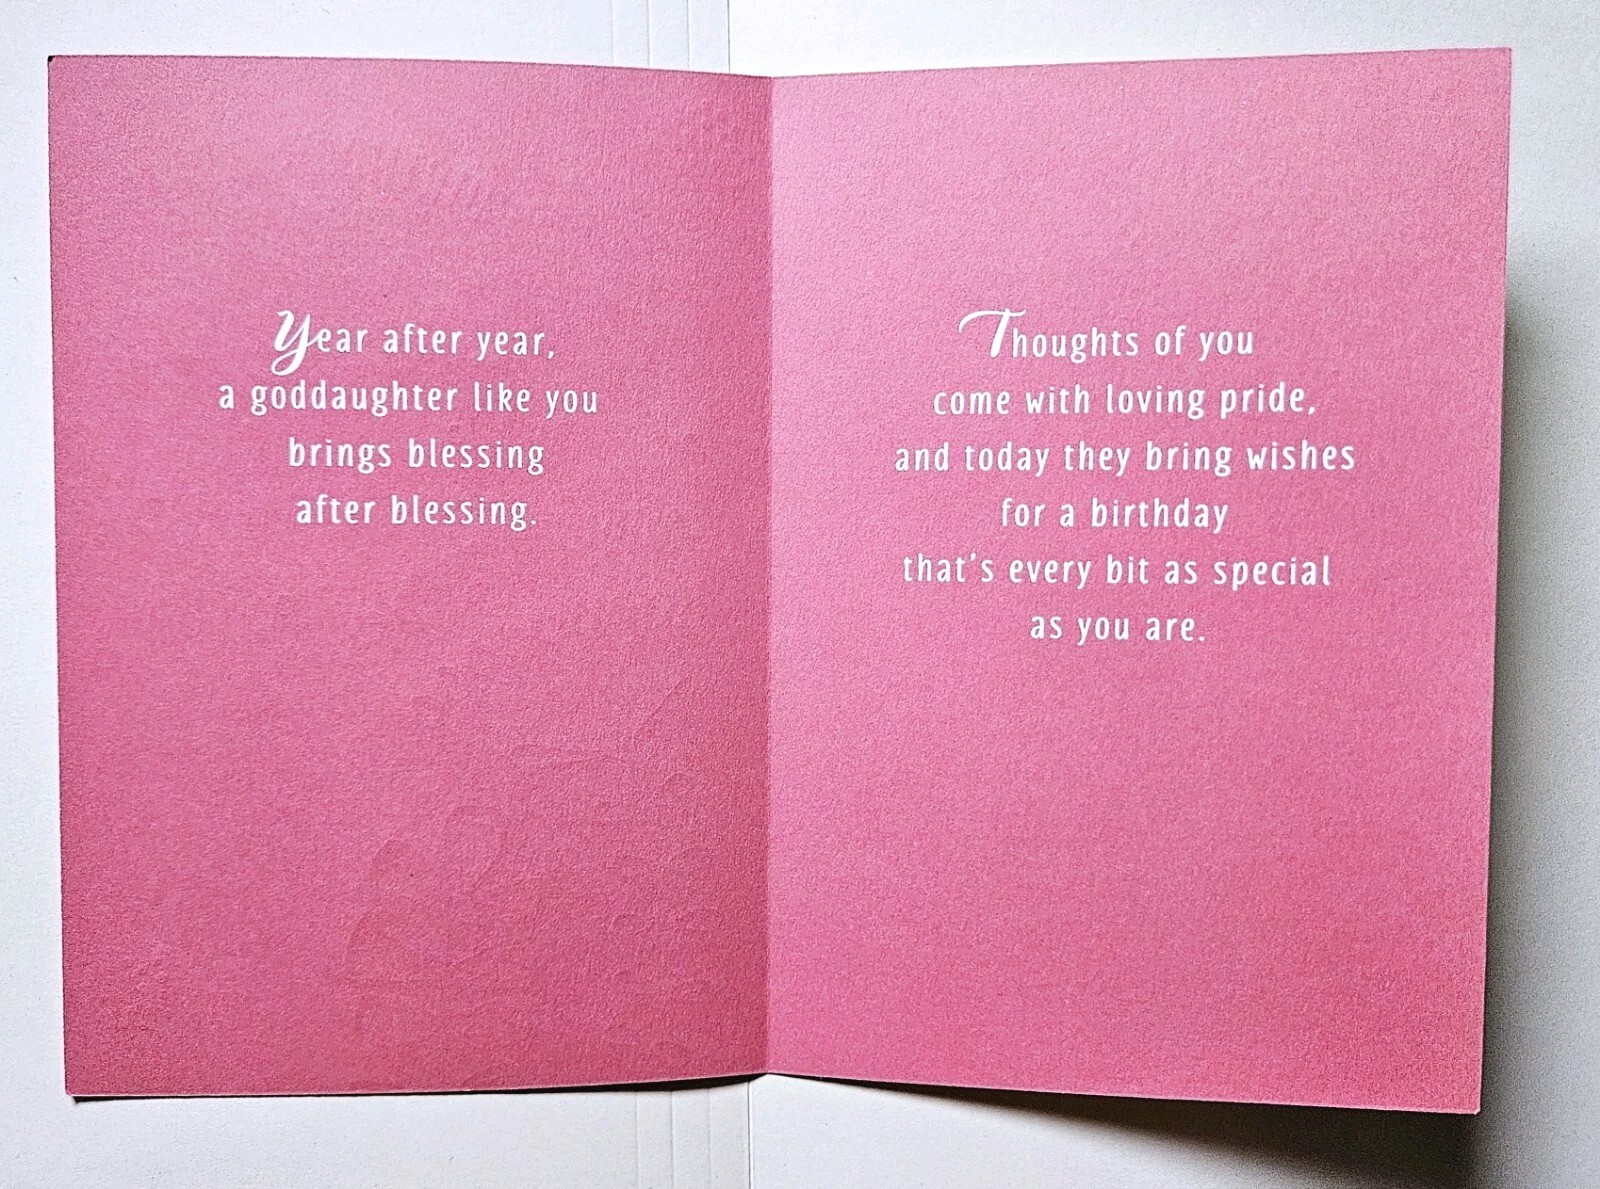 Year after year,
a goddaughter like you
brings blessing
after blessing.
Thoughts of you
come with loving pride,
and today they bring wishes
for a birthday
that's every bit as special
as you are.